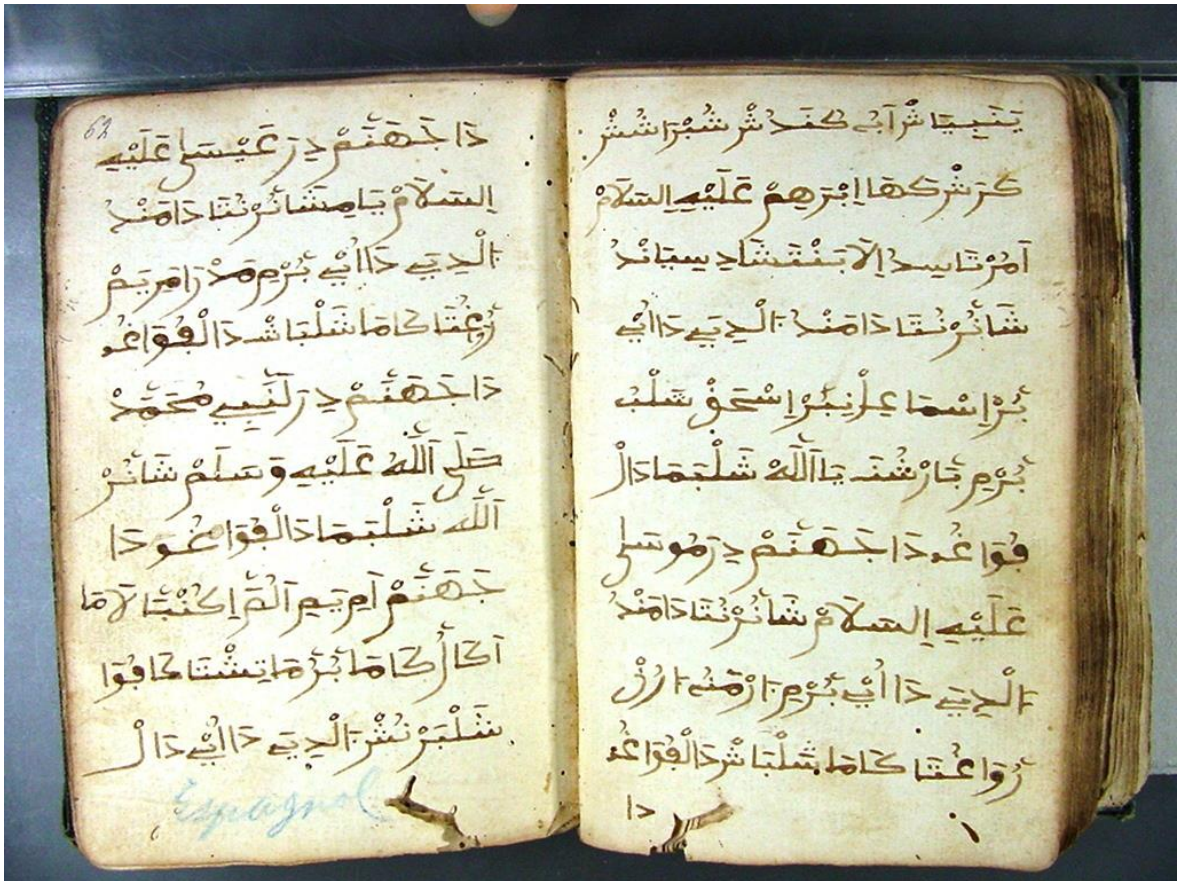 كَرَشْ كَهَا اِبْرَهِمْ عَلَيْهِ اِلسَّلَامْ
شَانُرْ نُتَا دَامَنْدُ اَلْدِيَ دَا اُيْ
بُرْ اِسْمَاعِلْ نِبُرْ اِسْحَقْ شَلْبُ
بُرْمِ بَارْشُنَ يَا اَللَّهْ شَلْبَمَا دَالْ
فُوَاغُ دَا جَهَنَّمْ دِرَ مُوسَى
عَلَيْهِ اِلسَّلَامْ شَانُرْ نُتَا دَامَنْدُ
اَلْدِيَ دَا اُيْ بُرْمِ اَرْمَنُ اَرُنْ
رُوَاغُتَا كَامَا شَلْبَاشْ دَالْفُوَاغُ
دا
62
دَا جَهَنَّمْ دِرَ عَيْسَى عَلَيْهِ
اِلسَّلَامْ يَامِشَانُرْ نُتَا دَامَنْدُ
اَلْدِيَ دَا اُيْ بُرْمِ مَدْرَا مَرِيَمْ
رُغُتَا كَامَا شَلْبَاشْ دَالْفُوَاغُ
دَا جَهَنَّمْ دِرَ اَلنَّبِي مُحَمَّدْ
صَلَى اَللَّهُ عَلَيْهِ وَسَلَمْ شَانُرْ
اَللَّه شَلْبَمَا دَالْفُوَاغُ دَا
جَهَنَّمْ
اَكَالْ كَامَا بُرْمَاتِشْتَا كَافُوَا
شَلْبَرْنُشْ اَلْدِيَ دَا اُيْ دَالْ
Espagnol